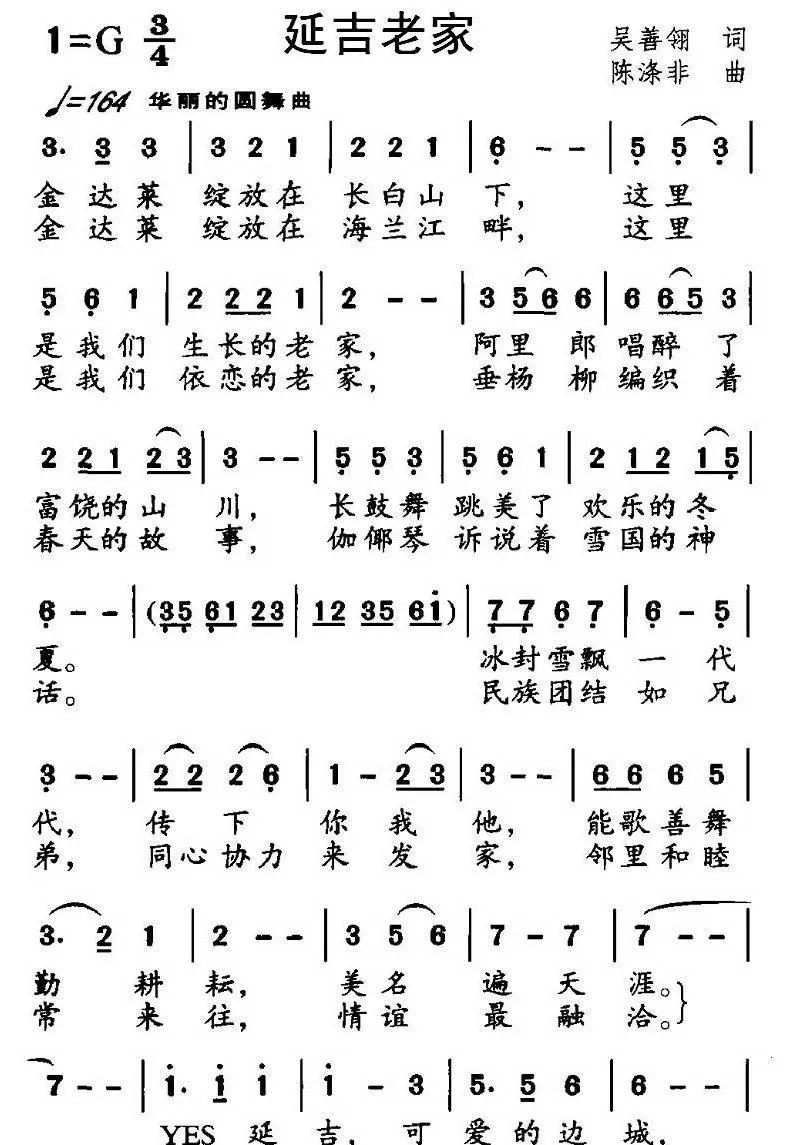 1=G 3/4 延吉老家 吴善翎 词
陈涤非 曲
♩=164 华丽的圆舞曲
3. 3 3 | 3 2 1 | 2 2 1 | 6 - - | 5 5 3 |
金达莱 绽放在 长白山 下, 这里
金达莱 绽放在 海兰江 畔, 这里
5 6 1 | 2 2 2 1 | 2 - - | 3 5 6 6 | 6 6 5 3 |
是我们 生长的老 家, 阿里 郎 唱醉 了
是我们 依恋的老 家, 垂杨 柳 编织 着
2 2 1 2 3 | 3 - - | 5 5 3 | 5 6 1 | 2 1 2 1 5 |
富饶的山 川, 长鼓舞 跳美了 欢乐的冬
春天的故 事, 伽倻琴 诉说着 雪国的神
6 - - | (3 5 6 1 2 3 | 1 2 3 5 6 i) | 7 7 6 7 | 6 - 5 |
夏。 冰封雪飘 一 代
话。 民族团结 如 兄
3 - - | 2 2 2 6 | 1 - 2 3 | 3 - - | 6 6 6 5 |
代, 传 下 你 我 他, 能歌善舞
弟, 同心协力 来 发 家, 邻里和睦
3. 2 1 | 2 - - | 3 5 6 | 7 - 7 | 7 - - |
勤 耕 耘, 美 名 遍 天 涯。
常 来 往, 情 谊 最 融 洽。
7 - - | i. i i | i - 3 | 5. 5 6 | 6 - - |
YES 延 吉, 可 爱的边 城,